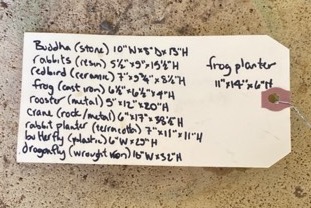 Buddha (stone) 10"W×8"D×13"H
rabbits (resin) 5½"×9"×15½"H
redbird (ceramic) 7"×9¾"×8½"H
frog (cast iron) 6½"×6½"×4"H
rooster (metal) 9"×12"×20"H
crane (rock/metal) 6"×17"×38½"H
rabbit planter (terracotta) 7"×11"×11"H
butterfly (plastic) 6"W×29"H
dragonfly (wrought iron) 16"W×32"H
frog planter
11"×14"×6"H